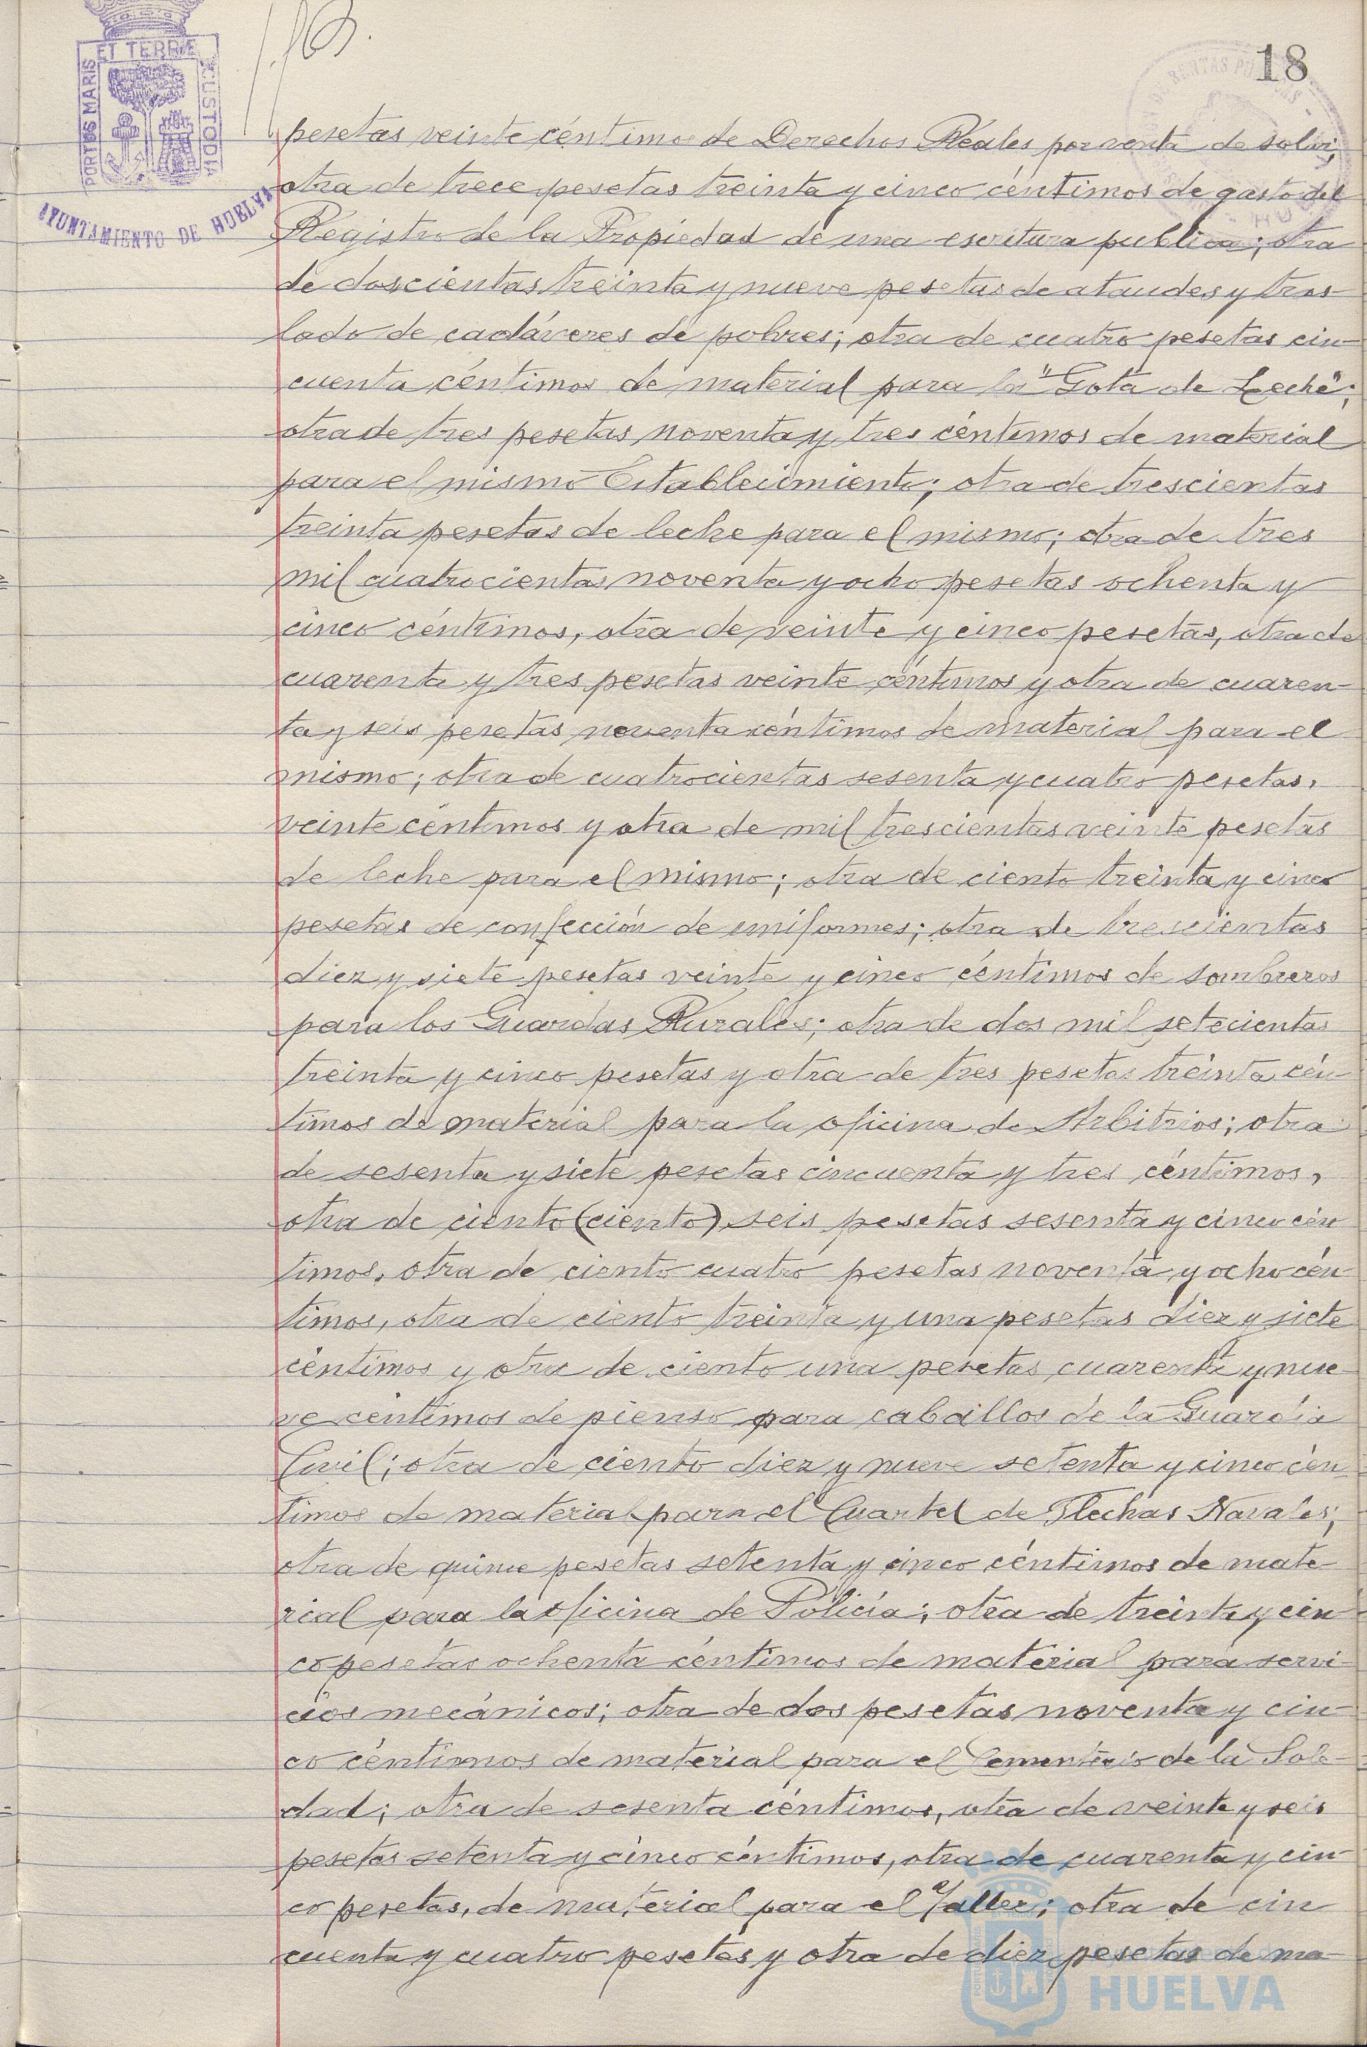 18
PORTUS MARIS ET TERRE CUSTODIA
AYUNTAMIENTO DE HUELVA
pesetas veinte céntimos de Derechos Reales por venta de solar;
otra de trece pesetas treinta y cinco céntimos de gasto del
Registro de la Propiedad de una escritura publica; otra
de doscientas treinta y nueve pesetas de ataudes y tras-
lado de cadáveres de pobres; otra de cuatro pesetas cin-
cuenta céntimos de material para la "Gota de Leche";
otra de tres pesetas noventa y tres céntimos de material
para el mismo Establecimiento; otra de trescientas
treinta pesetas de leche para el mismo; otra de tres
mil cuatrocientas noventa y ocho pesetas ochenta y
cinco céntimos, otra de veinte y cinco pesetas, otra de
cuarenta y tres pesetas veinte céntimos y otra de cuaren-
ta y seis pesetas noventa céntimos de material para el
mismo; otra de cuatrocientas sesenta y cuatro pesetas,
veinte céntimos y otra de mil trescientas veinte pesetas
de leche para el mismo; otra de ciento treinta y cinco
pesetas de confección de uniformes; otra de trescientas
diez y siete pesetas veinte y cinco céntimos de sombreros
para los Guardas Rurales; otra de dos mil setecientas
treinta y cinco pesetas y otra de tres pesetas treinta cén-
timos de material para la oficina de Arbitrios; otra
de sesenta y siete pesetas cincuenta y tres céntimos,
otra de ciento (ciento) seis pesetas sesenta y cinco cén
timos, otra de ciento cuatro pesetas noventa y ocho cén-
timos, otra de ciento treinta y una pesetas diez y siete
céntimos y otra de ciento una pesetas cuarenta y nue-
ve centimos de pienso para caballos de la Guardia
Civil; otra de ciento diez y nueve setenta y cinco cén-
timos de material para el Cuartel de Flechas Navales;
otra de quince pesetas setenta y cinco céntimos de mate-
rial para la oficina de Policía; otra de treinta y cin-
co pesetas ochenta céntimos de material para servi-
cios mecánicos; otra de dos pesetas noventa y cin-
co céntimos de material para el Cementerio de la Sole-
dad; otra de sesenta céntimos, otra de veinte y seis
pesetas setenta y cinco céntimos, otra de cuarenta y cin-
co pesetas, de material para el Taller; otra de cin
cuenta y cuatro pesetas y otra de diez pesetas de ma-
HUELVA